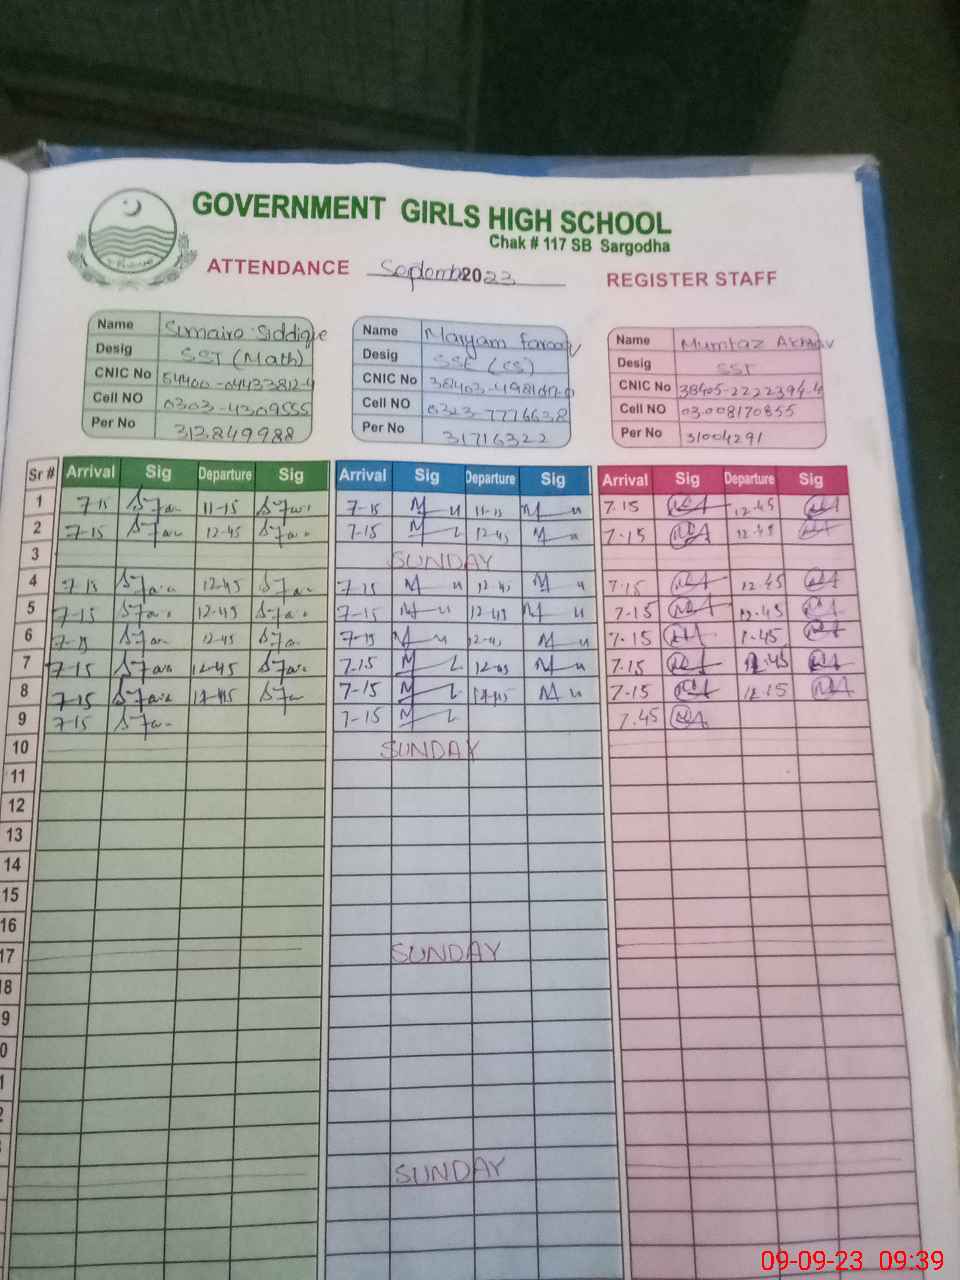 GOVERNMENT GIRLS HIGH SCHOOL
Chak # 117 SB Sargodha
ATTENDANCE Septemb 2023 REGISTER STAFF
Name Sumaira Siddique
Desig SST (Math)
CNIC No
Cell NO 0303-4309555
Per No 313849988
Name Maryam Farooq
Desig SSE (CS)
CNIC No
Cell NO 0323-7776638
Per No 31716322
Name Mumtaz Akhtar
Desig SST
CNIC No 38405-2222394-4
Cell NO 03008170855
Per No 31004291
Sr # Arrival Sig Departure Sig Arrival Sig Departure Sig Arrival Sig Departure Sig
1 7-15 11-15 7-15 11-15 7.15 12.45
2 7-15 12-45 7-15 12-45 7.15 12.45
3 SUNDAY
4 7-15 12-45 7-15 12-45 7.15 12.45
5 7-15 12-45 7-15 12-45 7-15 12.45
6 7-15 12-45 7-15 12-45 7-15 1.45
7 7-15 12-45 7-15 12-45 7.15 12.45
8 7-15 7-15 7-15 12.15
9 7-15 7-15 7.45
10 SUNDAY
11
12
13
14
15
16
17 SUNDAY
18
9
0
1
2
SUNDAY
09-09-23 09:39